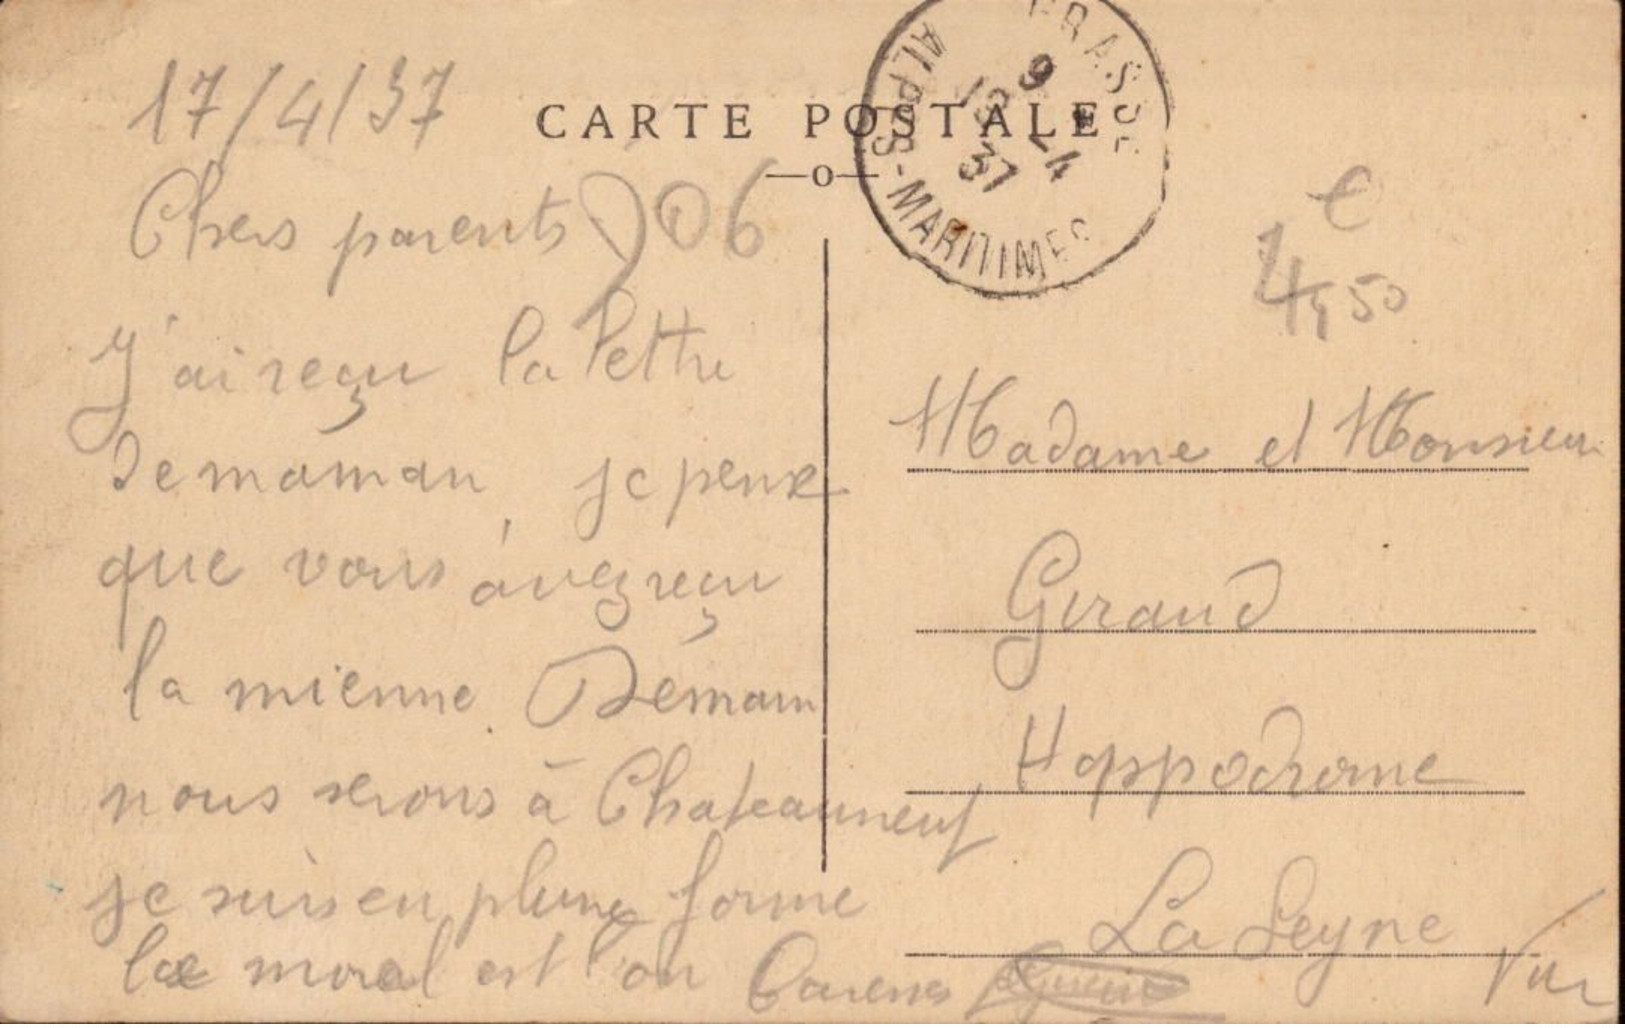 17/4/37
CARTE POSTALE
—o—
GRASSE
ALPES-MARITIMES
9
18 - 4
37
Chers parents
06
J'ai reçu la lettre
de maman je pense
que vous avez reçu
la mienne. Demain
nous serons à Chateauneuf
je suis en pleine forme
le moral est bon
€
4,50
Madame et Monsieur
Giraud
Hyppodrome
La Seyne
Var